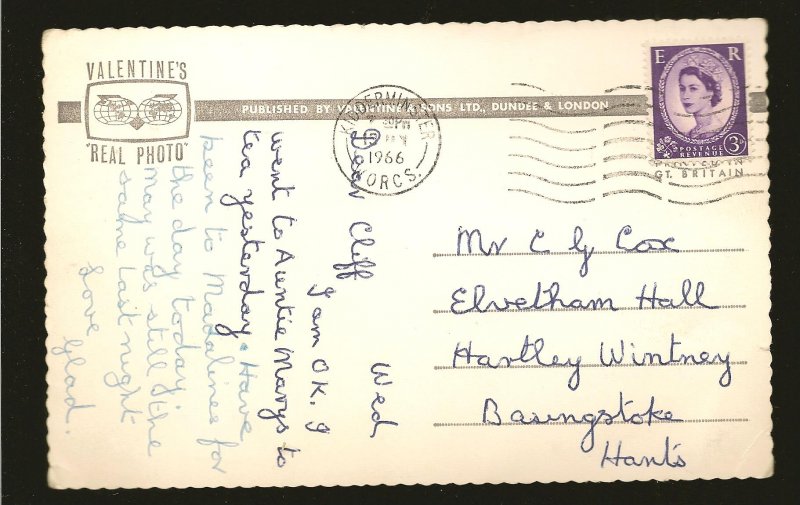 VALENTINE'S
"REAL PHOTO"
PUBLISHED BY VALENTINE & SONS LTD., DUNDEE & LONDON
KIDDERMINSTER
1966
WORCS.
E R
3D
POSTAGE
REVENUE
GT. BRITAIN
Wed
Dear Cliff
I am O.K. I
went to Auntie Marys to
tea yesterday. Have
been to Madalines for
the day today.
May was still the
same last night
Love
Glad.
Mr C G Cox
Elvetham Hall
Hartley Wintney
Basingstoke
Hants